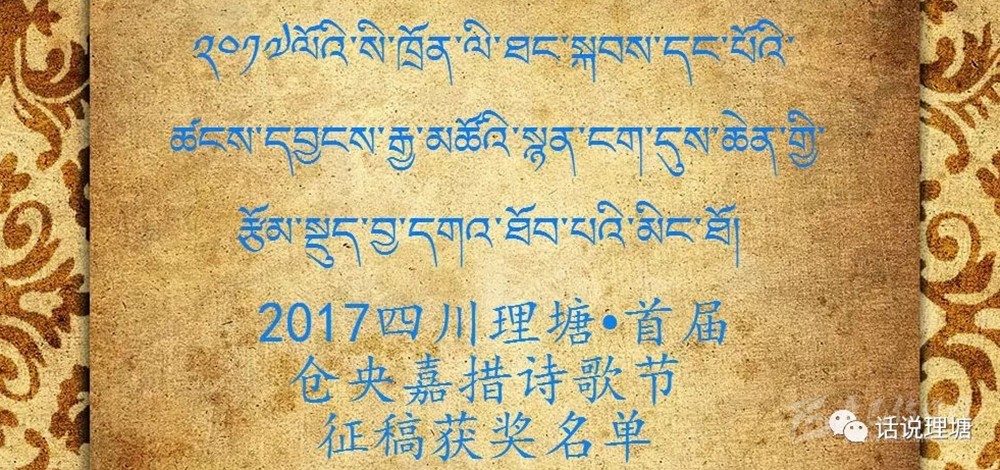 ༢༠༡༧ལོའི་སི་ཁྲོན་ལི་ཐང་སྐབས་དང་པོའི་
ཚངས་དབྱངས་རྒྱ་མཚོའི་སྙན་ངག་དུས་ཆེན་གྱི་
རྩོམ་སྡུད་བྱ་དགའ་ཐོབ་པའི་མིང་ཐོ།
2017四川理塘•首届
仓央嘉措诗歌节
征稿获奖名单
话说理塘